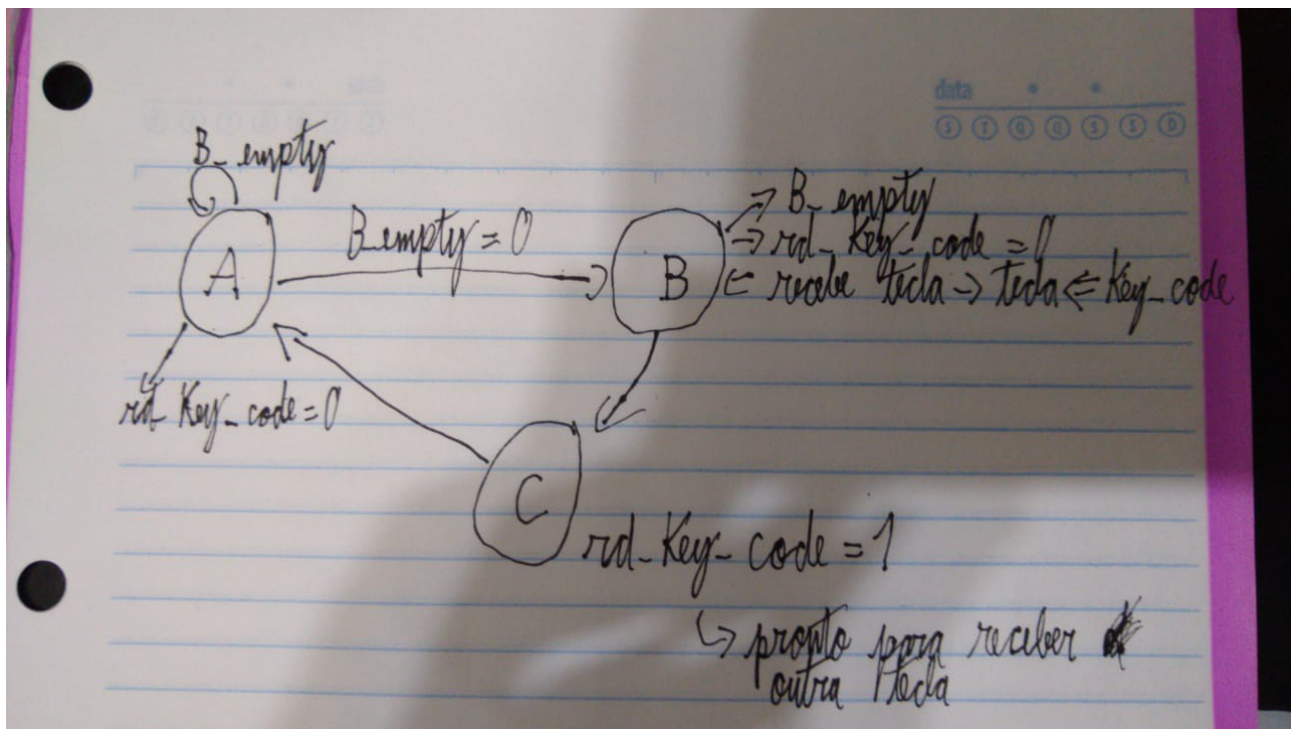 data
B_empty
B_empty = 0
A
B
→ B_empty
→ rd_Key_code = 0
⇐ recebe tecla → tecla ⇐ Key_code
rd_Key_code = 0
C
rd_Key_code = 1
↳ pronto para receber
outra tecla